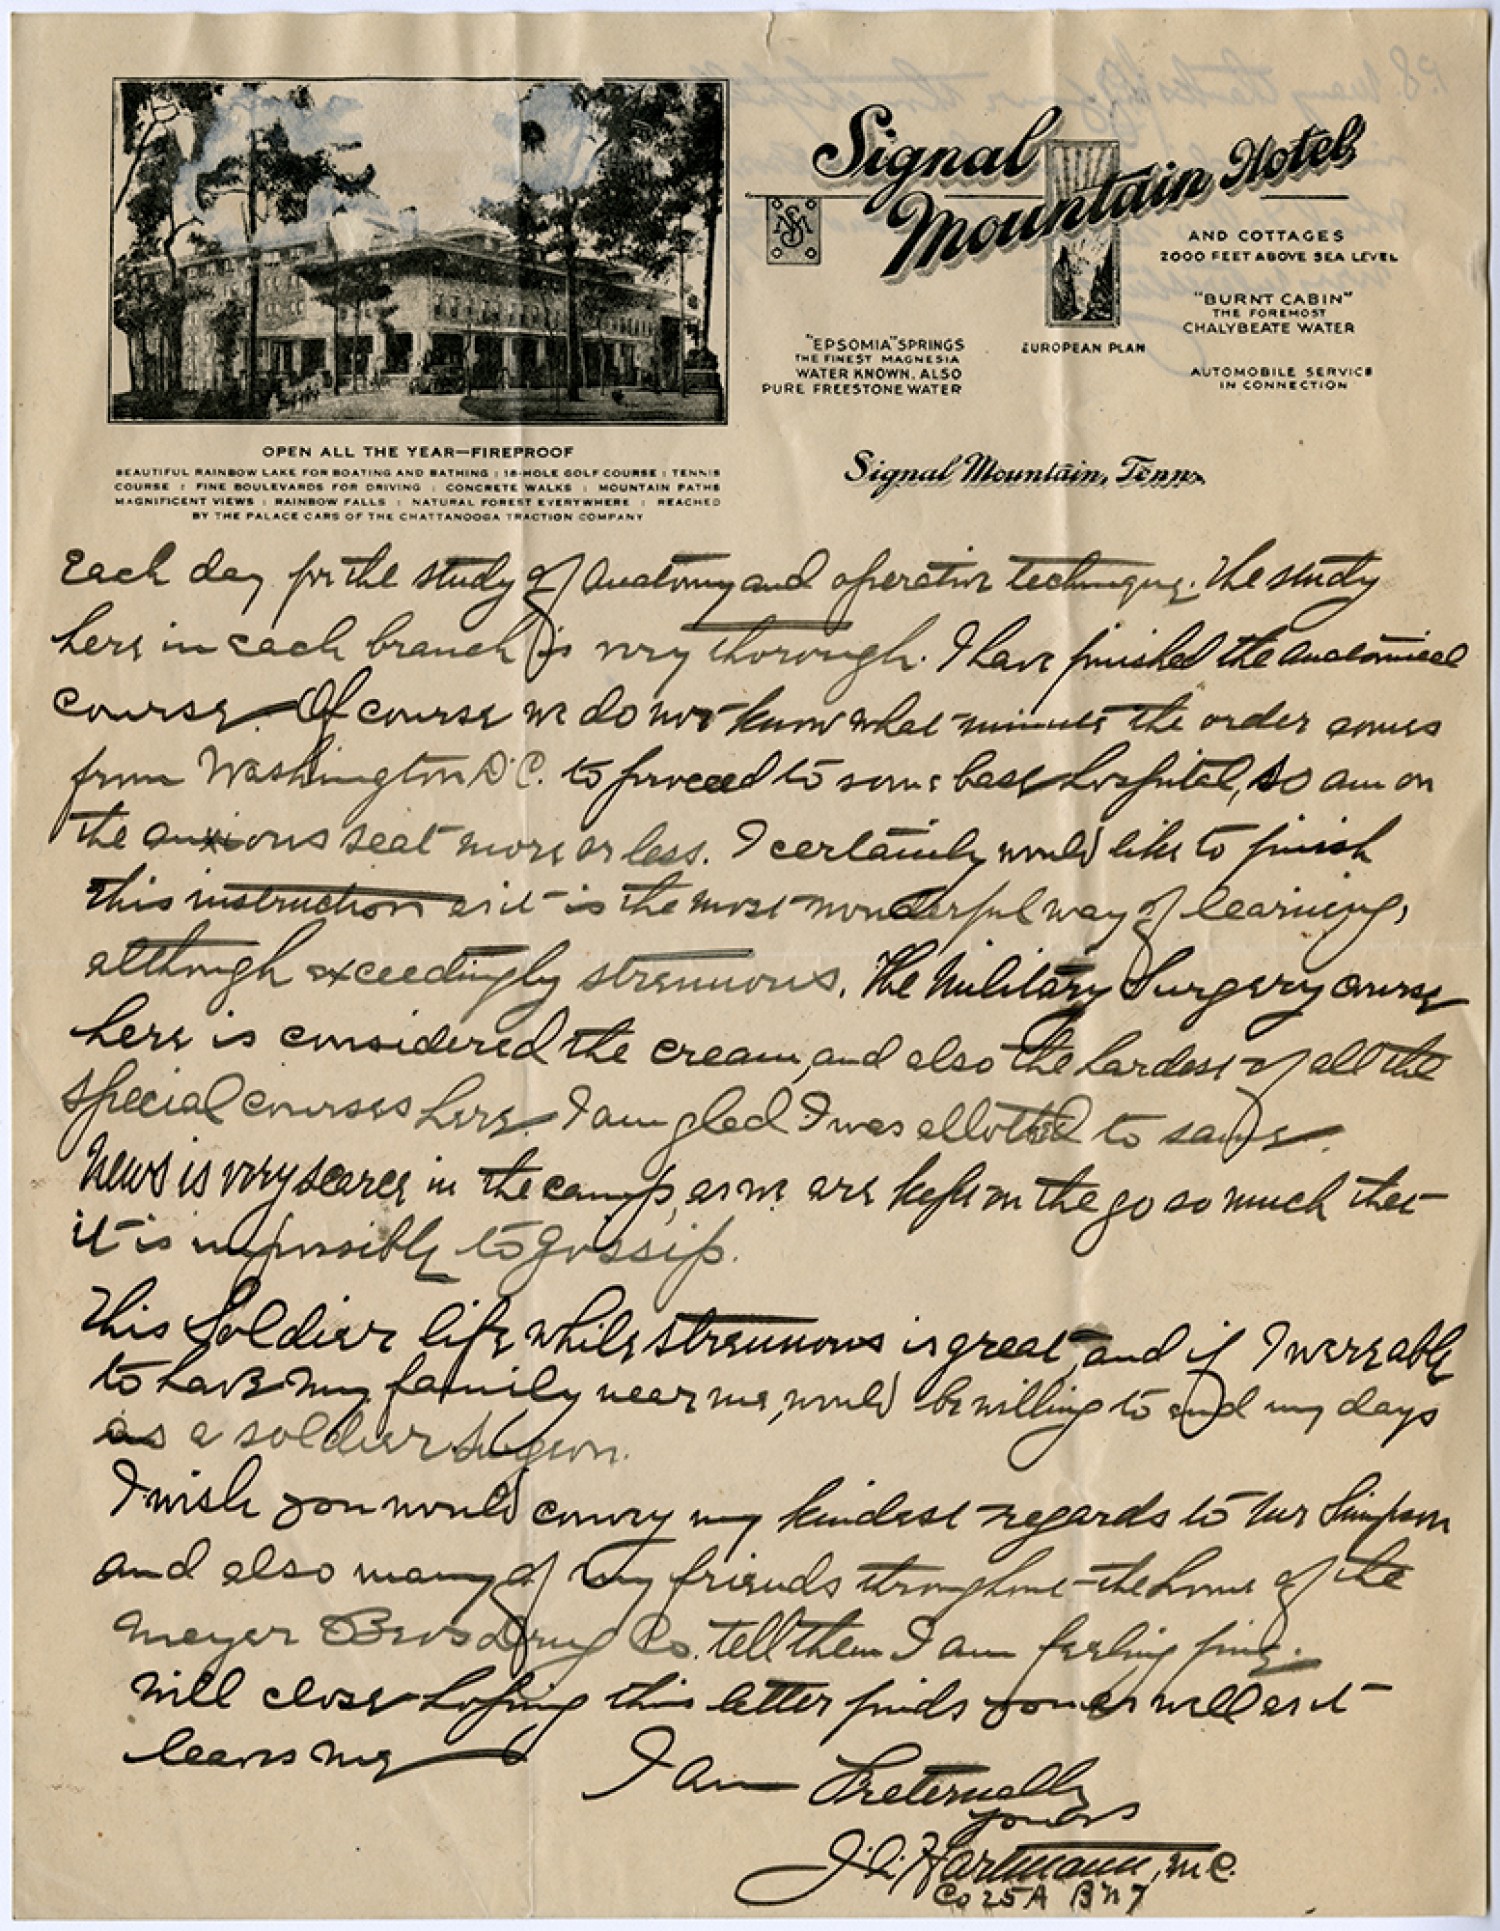 Signal
Mountain Hotel
AND COTTAGES
2000 FEET ABOVE SEA LEVEL
"BURNT CABIN"
THE FOREMOST
CHALYBEATE WATER
"EPSOMIA" SPRINGS
THE FINEST MAGNESIA
WATER KNOWN. ALSO
PURE FREESTONE WATER
EUROPEAN PLAN
AUTOMOBILE SERVICE
IN CONNECTION
OPEN ALL THE YEAR—FIREPROOF
BEAUTIFUL RAINBOW LAKE FOR BOATING AND BATHING : 18-HOLE GOLF COURSE : TENNIS
COURSE : FINE BOULEVARDS FOR DRIVING : CONCRETE WALKS : MOUNTAIN PATHS
MAGNIFICENT VIEWS : RAINBOW FALLS : NATURAL FOREST EVERYWHERE : REACHED
BY THE PALACE CARS OF THE CHATTANOOGA TRACTION COMPANY
Signal Mountain, Tenn.
Each day for the study of Anatomy and operative technique. The study
here in each branch is very thorough. I have finished the anatomical
course. Of course we do not know what minute the order comes
from Washington D.C. to proceed to some base hospital, so am on
the anxious seat more or less. I certainly would like to finish
this instruction as it is the most wonderful way of learning,
although exceedingly strenuous. The Military Surgery course
here is considered the cream, and also the hardest of all the
special courses here. I am glad I was allotted to same.
News is very scarce in the camp, as we are kept on the go so much that
it is impossible to gossip.
This Soldier life while strenuous is great, and if I were able
to have my family near me, would be willing to end my days
as a soldier surgeon.
I wish you would convey my kindest regards to Mr Simpson
and also many of my friends throughout the home of the
Meyer Bros Drug Co. tell them I am feeling fine.
Will close hoping this letter finds you as well as it
leaves me
I am Fraternally
yours
Hartmann, M.C.
Co 25 A BN 7